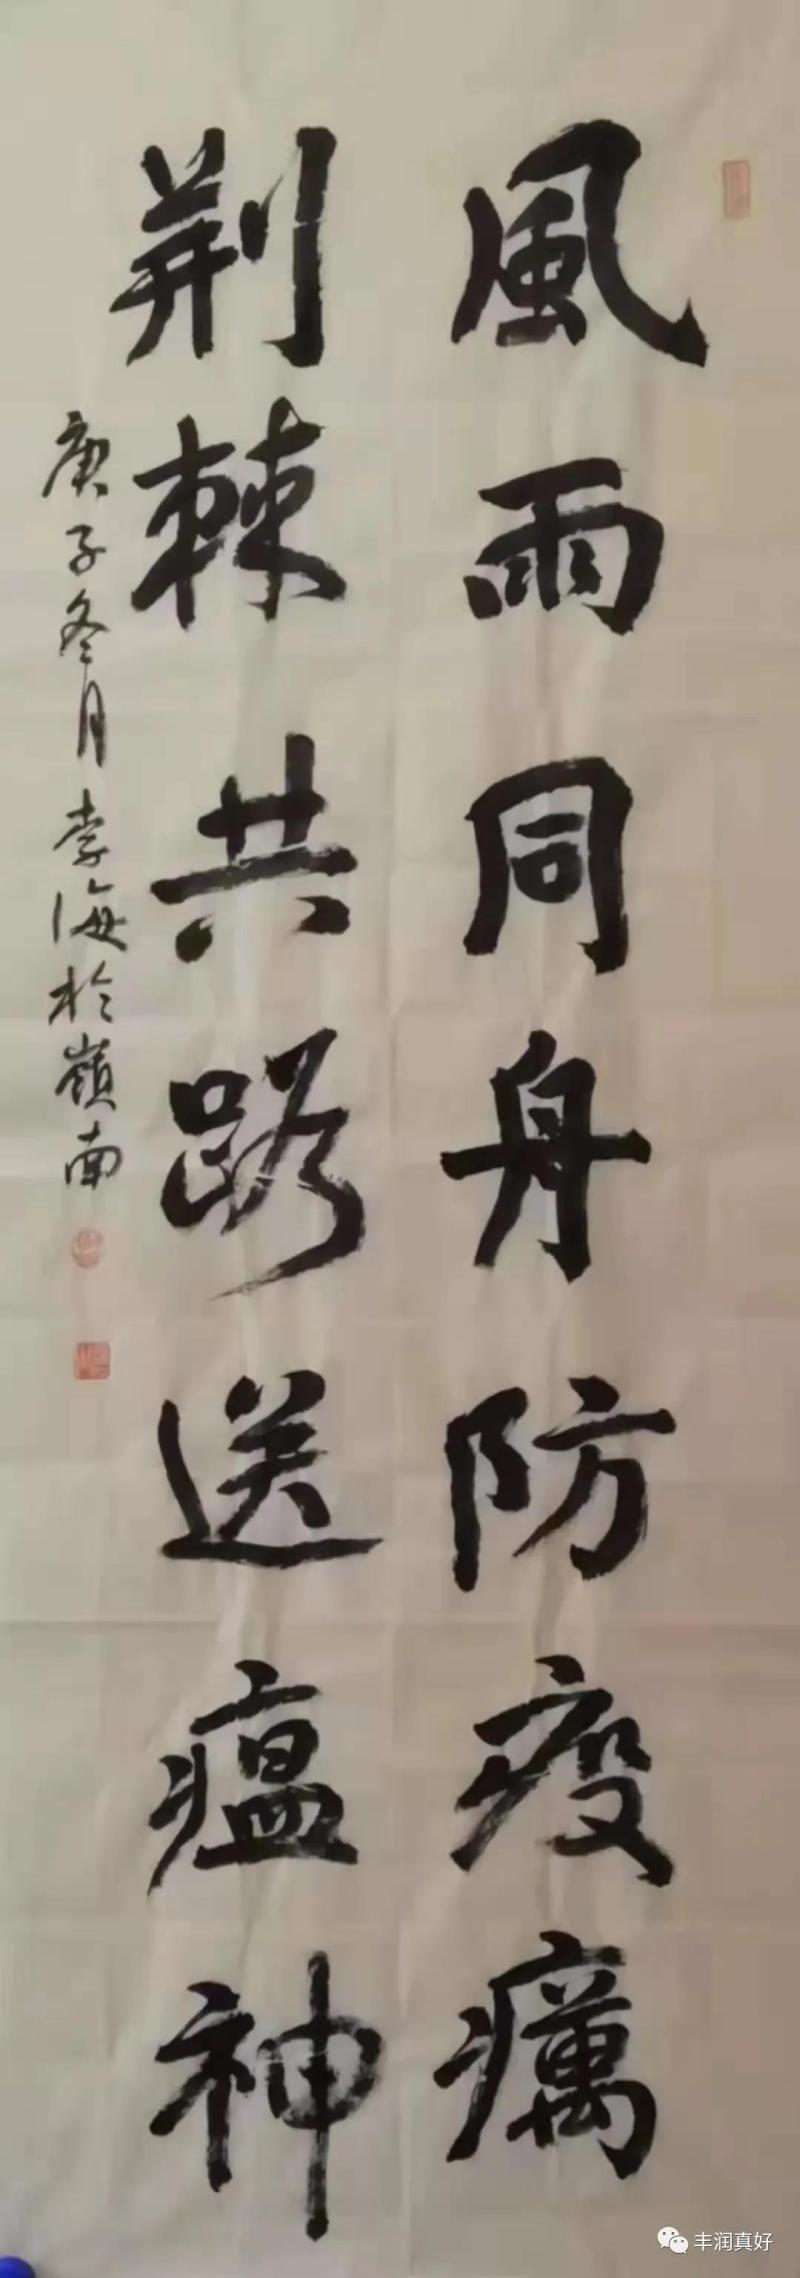 風雨同舟防疫癘
荆棘共路送瘟神
庚子冬月李海於嶺南
丰润真好